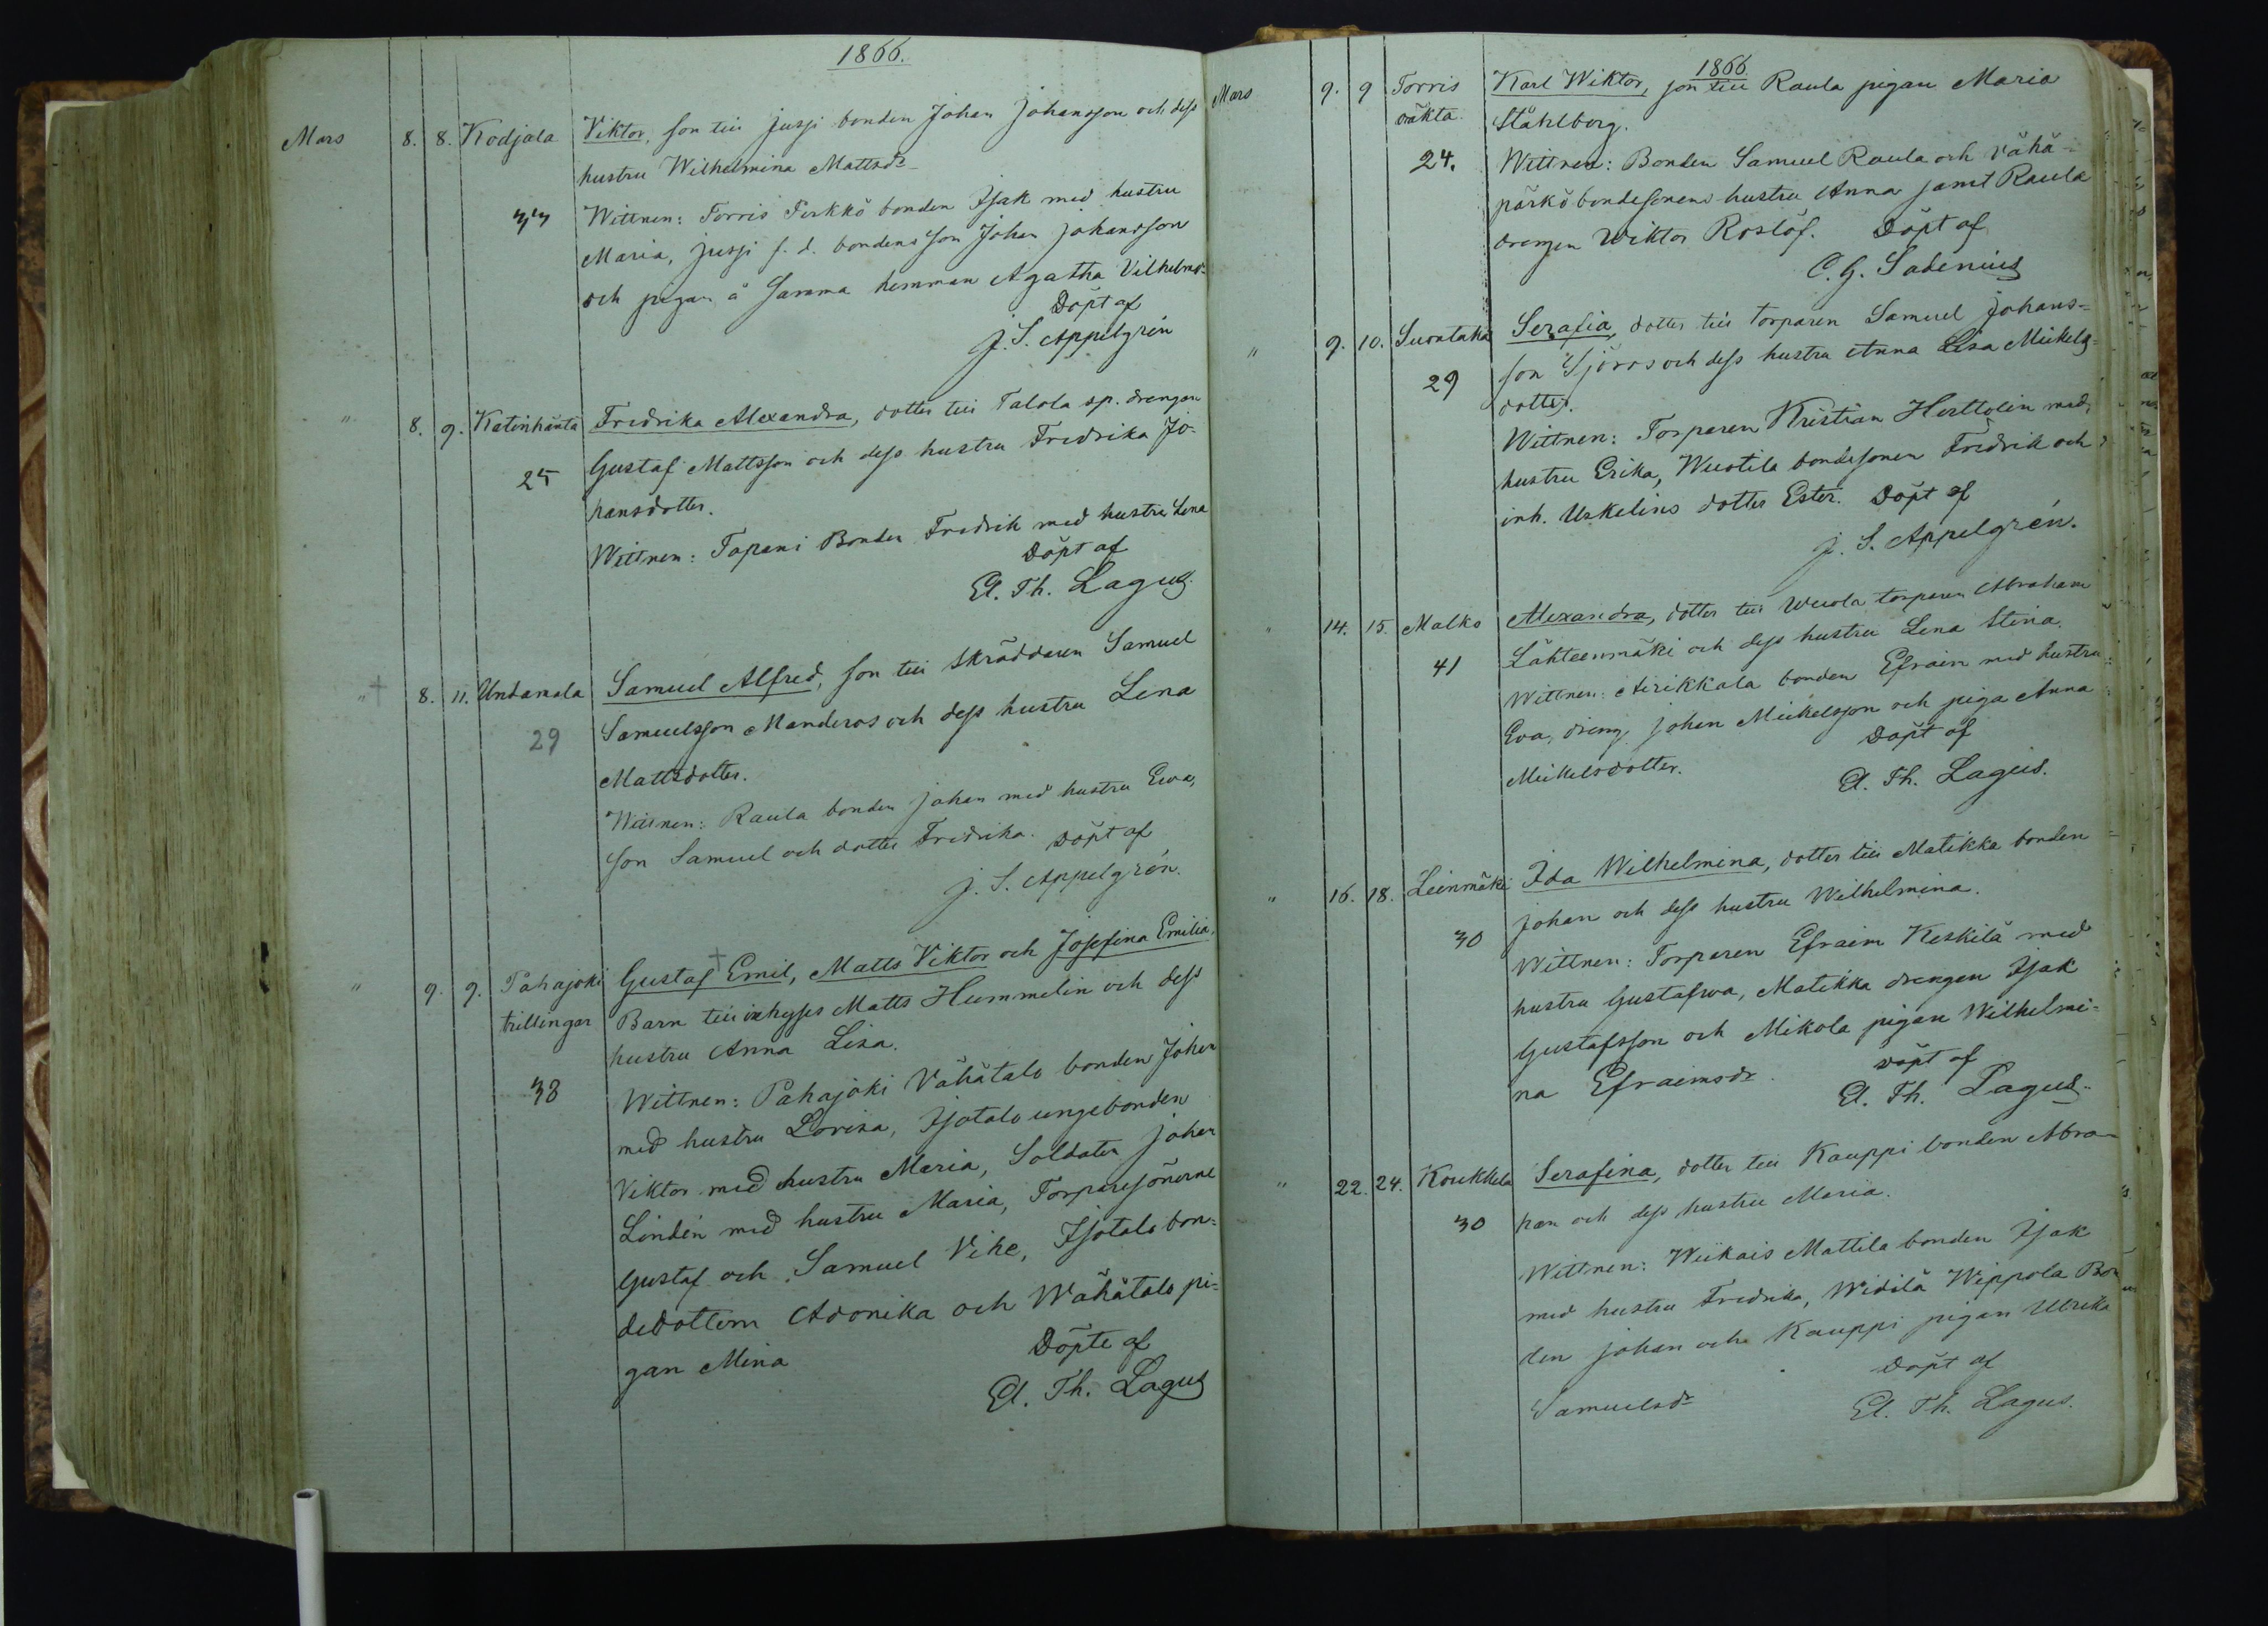 1866.
Mars 8. 8. Kodjala Viktor, son till Jussi bonden Johan Johansson och dess
hustru Wilhelmina Mattsdr
Wittnen: Torris Perkkö bonden Isak med hustru
Maria, Jussi f. d. bondens son Johan Johansson
och pigan å samma hemman Agatha Vilhelmsdr
Döpt af
J. S. Appelgrén
" 8. 9. Katinhänta Fredrika Alexandra, dotter till Talola sp. drengen
25 Gustaf Mattsson och dess hustru Fredrika Jo-
hansdotter.
Wittnen: Tapani Bonden Fredrik med hustru Lena
Döpt af
El. Th. Lagus.
" † 8. 11. Untamala Samuel Alfred, son till skräddaren Samuel
29 Samuelsson Manderos och dess hustru Lena
Mattsdotter.
Wittnen: Raula bonden Johan med hustru Ewa,
son Samuel och dotter Fredrika. Döpt af
J. S. Appelgrén.
" 9. 9. Pahajoki Gustaf † Emil, Matts Viktor och Josefina Emilia,
trillingar Barn till inhyses Matts Hummelin och dess
hustru Anna Lisa.
38 Wittnen: Pahajoki Vähätalo bonden Johan
med hustru Lovisa, Isotalo unge bonden
Viktor med hustru Maria, Soldaten Johan
Lindén med hustru Maria, Torparesönerne
Gustaf och Samuel Vike, Isotalo bon-
dedottern Adonika och Wähätalo pi-
gan Mina
Döpte af
El. Th. Lagus
1866.
Mars 9. 9 Torris Karl Wiktor, son till Raula pigan Maria
oäkta. Ståhlberg.
24. Wittnen: Bonden Samuel Raula och Vähä-
pärkö bondesonens hustru Anna samt Raula
drengen Wiktor Roslöf. Döpt af
C. G. Sadenius
" 9. 10. Suontaka Serafia, dotter till torparen Samuel Johans-
29 son Sjöros och dess hustru Anna Lisa Mickels-
dotter.
Wittnen: Torparen Kristian Herttolin med
hustru Erika, Wuotila bondesonen Fredrik och
inh. Uskelins dotter Ester. Döpt af
J. S. Appelgrén.
" 14. 15. Malko Alexandra, dotter till Wuola torparen Abraham
41 Lähteenmäki och dess hustru Lena Stina.
Wittnen: Airikkala bonden Efraim med hustru
Eva, dreng Johan Mickelsson och piga Anna
Mickelsdotter. Döpt af
El. Th. Lagus.
" 16. 18. Leinmäki Ida Wilhelmina, dotter till Matikka bonden
30 Johan och dess hustru Wilhelmina.
Wittnen: Torparen Efraim Keskilä med
hustru Gustafwa, Matikka drengen Isak
Gustafsson och Mikola pigan Wilhelmi-
na Efraimsdr. Döpt af
El. Th. Lagus.
" 22. 24. Koukkela Serafina, dotter till Kauppi bonden Abra-
30 ham och dess hustru Maria.
Wittnen: Wiikais Mattila bonden Isak
med hustru Fredrika, Widilä Wippola Bon
den Johan och Kauppi pigan Ulrika
Samuelsdr Döpt af
El. Th. Lagus.